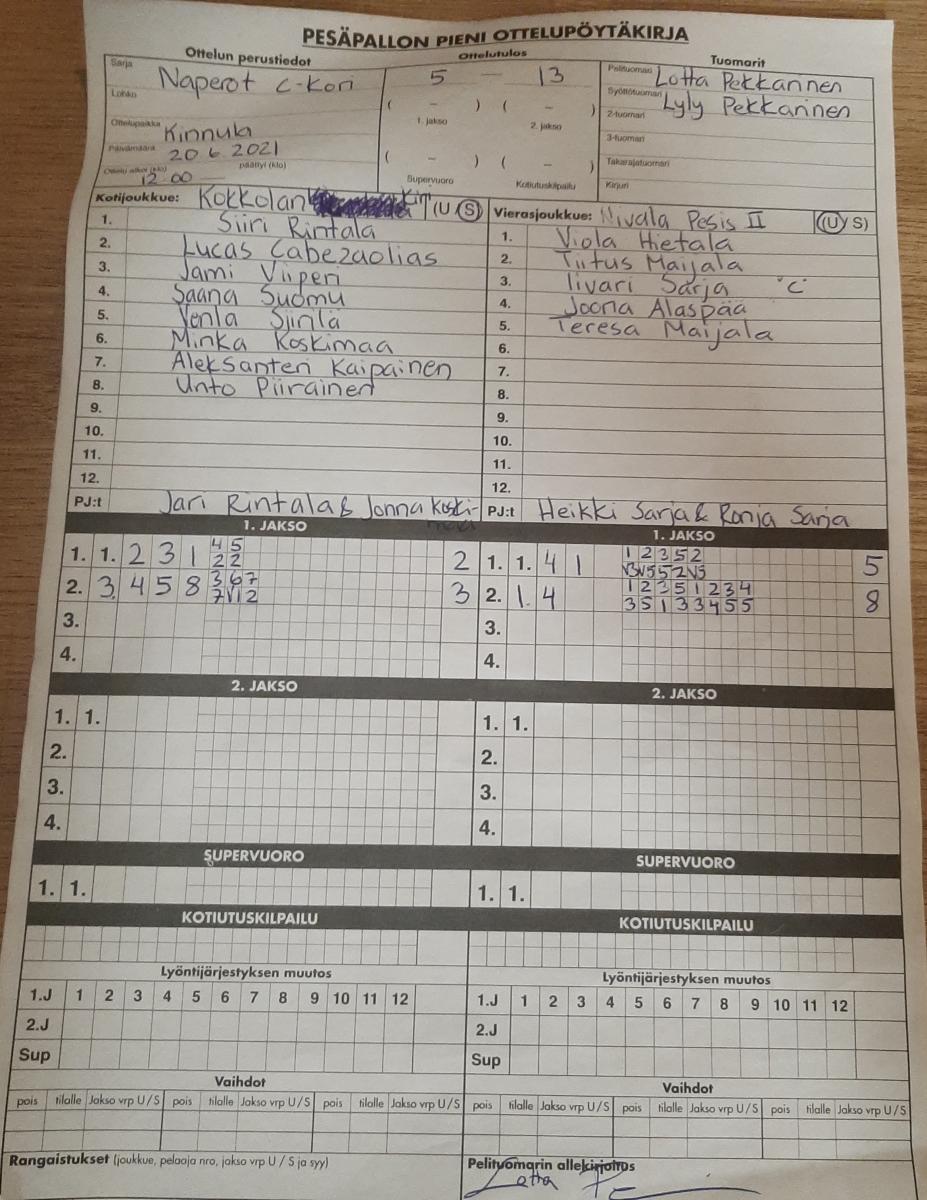 PESÄPALLON PIENI OTTELUPÖYTÄKIRJA
Ottelun perustiedot
Ottelutulos
Tuomarit
Sarja Naperot C-Kori
5 — 13
Pelituomari Lotta Pekkarinen
Lohko
( – ) ( – )
Syöttötuomari Lyly Pekkarinen
1. jakso 2. jakso
2-tuomari
Ottelupaikka Kinnula
3-tuomari
Päivämäärä 20 6 2021
( – ) ( – )
Takarajatuomari
Ottelu alkoi (klo) 12.00 päättyi (klo)
Supervuoro Kotiutuskilpailu
Kirjuri
Kotijoukkue: Kokkolan (U S)
1. Siiri Rintala
2. Lucas Cabezaolias
3. Jami Viiperi
4. Saana Suomu
5. Venla Siinlä
6. Minka Koskimaa
7. Aleksanteri Kaipainen
8. Unto Piirainen
9.
10.
11.
12.
PJ:t Jari Rintala & Jonna Koski-
maa
Vierasjoukkue: Nivala Pesis II (U S)
1. Viola Hietala
2. Tiitus Maijala
3. Iivari Sarja "C"
4. Joona Alaspää
5. Teresa Maijala
6.
7.
8.
9.
10.
11.
12.
PJ:t Heikki Sarja & Ronja Sarja
1. JAKSO
1. 1. 2 3 1 4 5 2
2 2
2. 3. 4 5 8 3 6 7 3
7 V1 2
3.
4.
1. JAKSO
1. 1. 4 1 1 2 3 5 2 5
V3 V5 5 2 V5
2. 1. 4 1 2 3 5 1 2 3 4 8
3 5 1 3 3 4 5 5
3.
4.
2. JAKSO
1. 1.
2.
3.
4.
2. JAKSO
1. 1.
2.
3.
4.
SUPERVUORO
1. 1.
SUPERVUORO
1. 1.
KOTIUTUSKILPAILU
KOTIUTUSKILPAILU
Lyöntijärjestyksen muutos
1.J 1 2 3 4 5 6 7 8 9 10 11 12
2.J
Sup
Lyöntijärjestyksen muutos
1.J 1 2 3 4 5 6 7 8 9 10 11 12
2.J
Sup
Vaihdot
pois tilalle Jakso vrp U / S pois tilalle Jakso vrp U / S pois tilalle Jakso vrp U / S
Vaihdot
pois tilalle Jakso vrp U / S pois tilalle Jakso vrp U / S pois tilalle Jakso vrp U / S
Rangaistukset (joukkue, pelaaja nro, jakso vrp U / S ja syy)
Pelituomarin allekirjoitus
Lotta